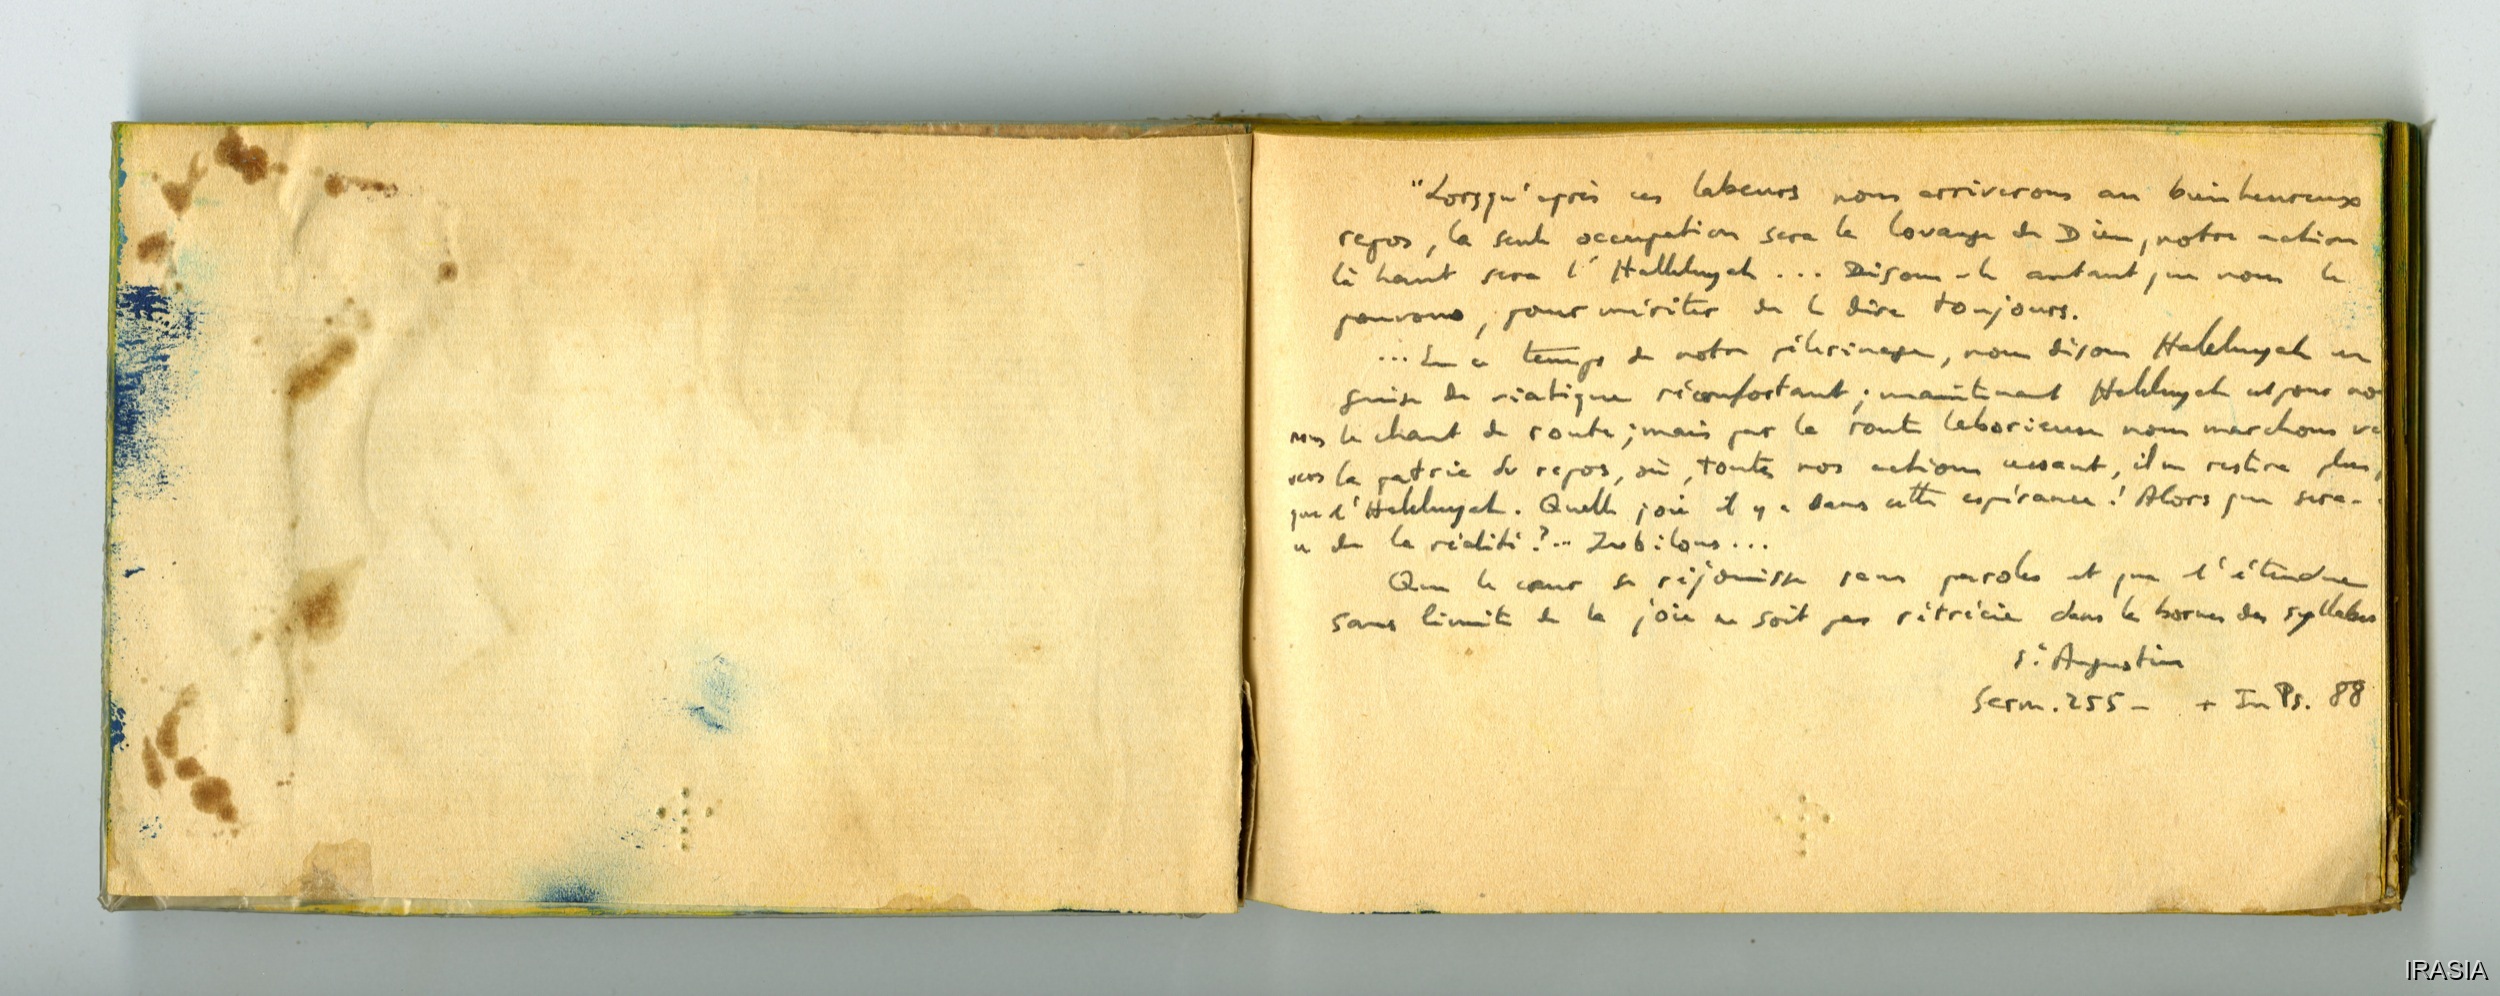 "Lorsqu'après ces labeurs nous arriverons au bienheureux
repos, la seule occupation sera la louange de Dieu, notre action
là haut sera l'Halleluyah ... Disons-le autant que nous le
pouvons, pour mériter de le dire toujours.
... En ce temps de notre pèlerinage, nous disons Halleluyah en
guise de viatique réconfortant ; maintenant Halleluyah est pour no
nous le chant de route ; mais par la route laborieuse nous marchons ve
vers la patrie du repos, où, toutes nos actions cessant, il ne restera plus
que l'Halleluyah. Quelle joie il y a dans cette espérance ! Alors que sera-
ce de la réalité ? .. Jubilons ...
Que le cœur se réjouisse sans paroles et que l'étendue
sans limite de la joie ne soit pas rétrécie dans les bornes des syllabes
St Augustin
Serm. 255 - + In Ps. 88
IRASIA